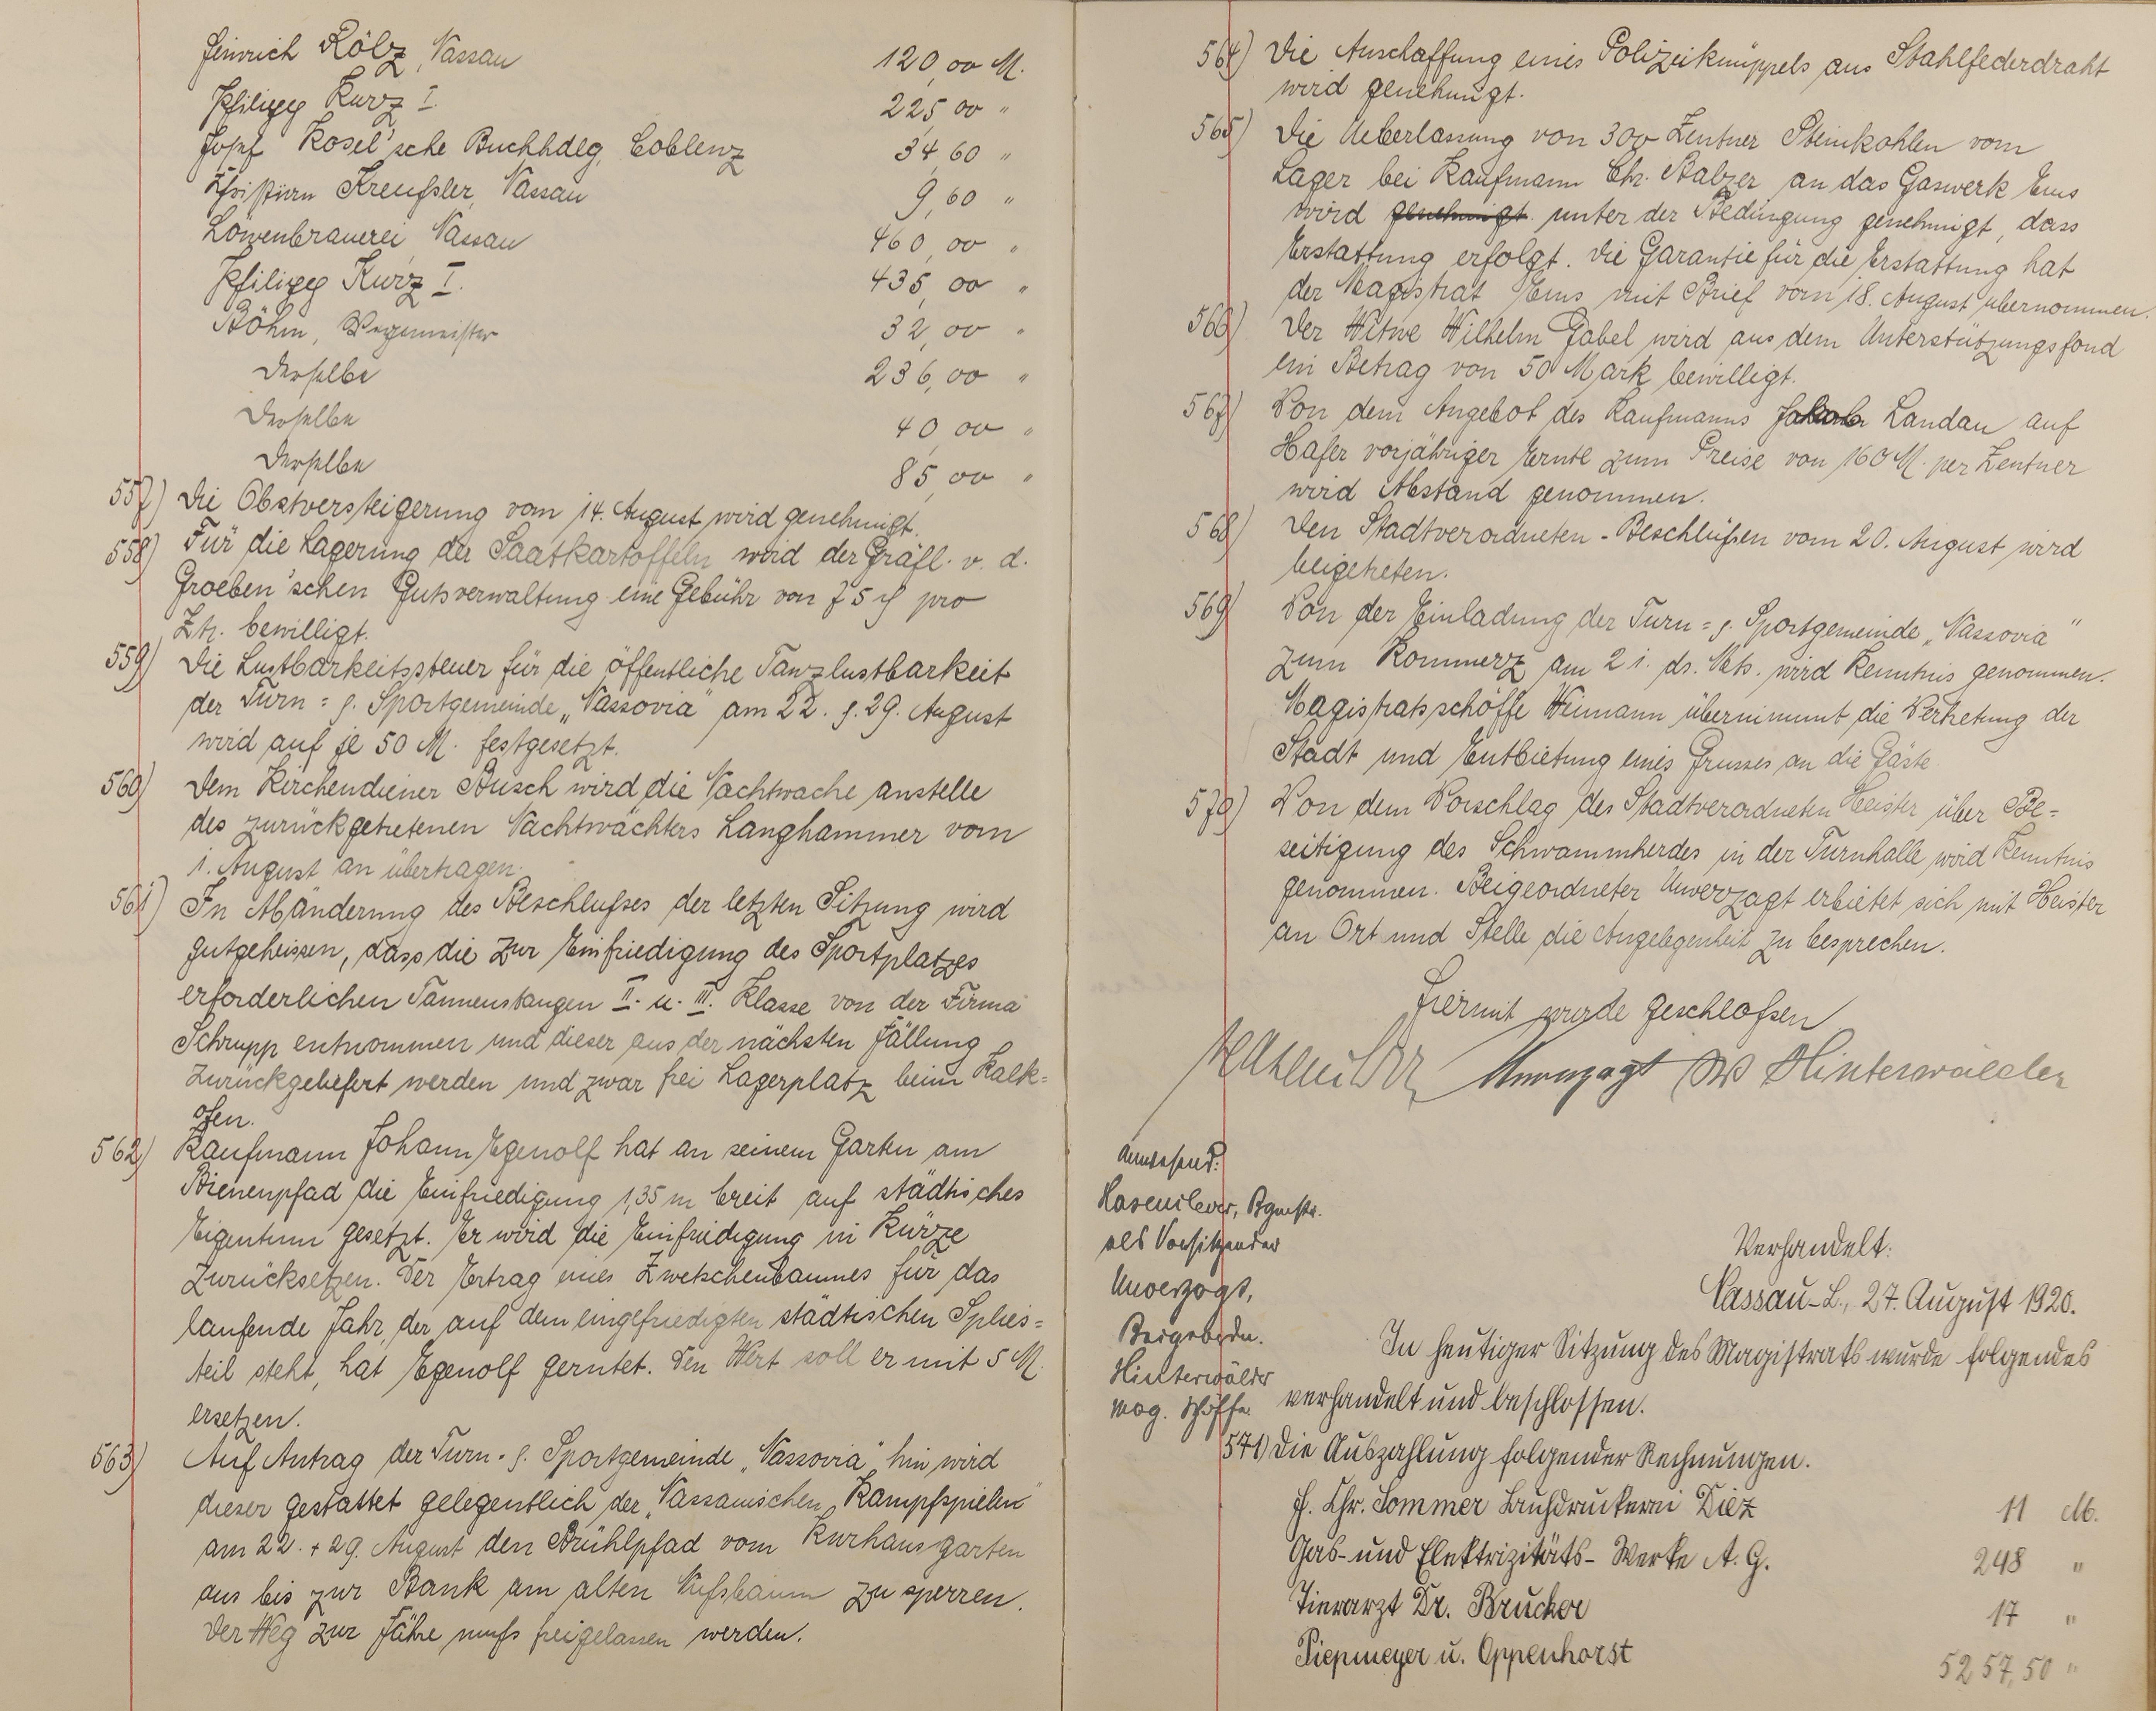 Heinrich Kölz, Nassau 120,00 M.
Philipp Kurz I. 225,00 "
Josef Kosel'sche Buchhdlg, Coblenz 34,60 "
Christian Kreußler, Nassau 9,60 "
Löwenbrauerei Nassau 460,00 "
Philipp Kurz I. 435,00 "
Böhm, Wegemeister 32,00 "
Derselbe 236,00 "
Derselbe 40,00 "
Derselbe 85,00 "
557) Die Obstversteigerung vom 14. August wird genehmigt.
558) Für die Lagerung der Saatkartoffeln wird der Gräfl. v. d.
Groeben'schen Gutsverwaltung eine Gebühr von 75 ₰ pro
Ztr. bewilligt.
559) Die Lustbarkeitssteuer für die öffentliche Tanzlustbarkeit
der Turn= u. Sportgemeinde „Nassovia" am 22. u. 29. August
wird auf je 50 M. festgesetzt.
560) Dem Kirchendiener Busch wird die Nachtwache anstelle
des zurückgetretenen Nachtwächters Langhammer vom
1. August an übertragen.
561) In Abänderung des Beschlußes der letzten Sitzung wird
gutgeheissen, dass die zur Einfriedigung des Sportplatzes
erforderlichen Tannenstangen II. u. III. Klasse von der Firma
Schrupp entnommen und dieser aus der nächsten Fällung
zurückgeliefert werden und zwar frei Lagerplatz beim Kalk=
ofen.
562) Kaufmann Johann Egenolf hat an seinem Garten am
Bienenpfad die Einfriedigung 1,35 m breit auf städtisches
Eigentum gesetzt. Er wird die Einfriedigung in Kürze
zurücksetzen. Der Ertrag eines Zwetschenbaumes für das
laufende Jahr, der auf dem eingefriedigten städtischen
teil steht, hat Egenolf gerntet. Den Wert soll er mit 5 M.
ersetzen.
563) Auf Antrag der Turn- u. Sportgemeinde „Nassovia" hin wird
dieser gestattet gelegentlich der „Nassauischen Kampfspiele"
am 22. + 29. August den Brühlpfad vom Kurhausgarten
aus bis zur Bank am alten Nußbaum zu sperren.
Der Weg zur Fähre muß freigelassen werden.
564) Die Anschaffung eines Polizeiknüppels aus Stahlfederdraht
wird genehmigt.
565) Die Ueberlassung von 300 Zentner Steinkohlen vom
Lager bei Kaufmann Chr. Balzer an das Gaswerk Ems
wird genehmigt unter der Bedingung genehmigt, dass
Erstattung erfolgt. Die Garantie für die Erstattung hat
der Magistrat Ems mit Brief vom 18. August übernommen.
566) Der Witwe Wilhelm Gabel wird aus dem Unterstützungsfond
ein Betrag von 50 Mark bewilligt.
567) Von dem Angebot des Kaufmanns Jakob Landau auf
Hafer vorjähriger Ernte zum Preise von 160 M. per Zentner
wird Abstand genommen.
568) Den Stadtverordneten-Beschlüßen vom 20. August wird
beigetreten.
569) Von der Einladung der Turn= u. Sportgemeinde „Nassovia"
zum Kommerz am 21. ds. Mts. wird Kenntnis genommen.
Magistratsschöffe Weimann übernimmt die Vertretung der
Stadt und Entbietung eines Grusses an die Gäste.
570) Von dem Vorschlag des Stadtverordneten Heister über Be=
seitigung des Schwammherdes in der Turnhalle wird Kenntnis
genommen. Beigeordneter Unverzagt erbietet sich mit Heister
an Ort und Stelle die Angelegenheit zu besprechen.
Hiermit wurde geschloßen
Unverzagt Hinterwälder
Anwesend:
Hasenclever, Bgmstr.
als Vorsitzender
Unverzagt,
Beigeordn.
Hinterwälder
Mag. Schöffe.
Verhandelt:
Nassau-L., 27. August 1920.
In heutiger Sitzung des Magistrats wurde folgendes
verhandelt und beschlossen.
571) Die Auszahlung folgender Rechnungen.
H. Chr. Sommer Buchdruckerei Diez 11 M.
Gas- und Elektrizitäts-Werke A. G. 248 "
Tierarzt Dr. Brücker 17 "
Piepmeyer u. Oppenhorst 5257,50 "